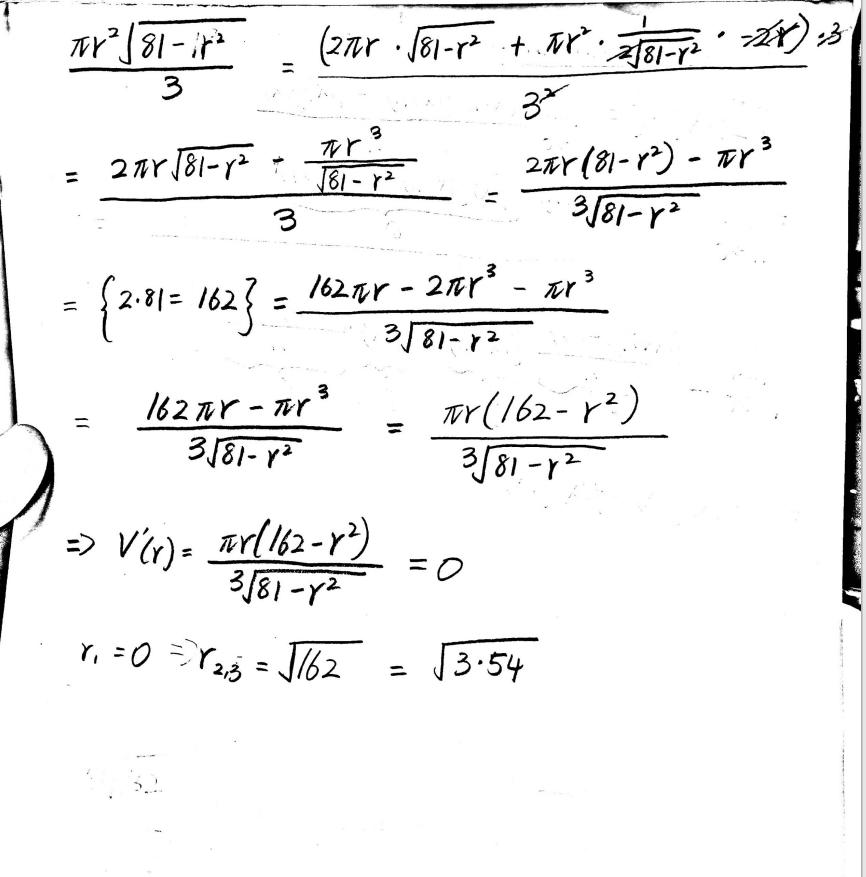 πr²√(81-r²) / 3 = (2πr · √(81-r²) + πr² · 1/(2√(81-r²)) · -2r) · 3 / 3²
= (2πr√(81-r²) - πr³/√(81-r²)) / 3 = (2πr(81-r²) - πr³) / (3√(81-r²))
= {2·81 = 162} = (162πr - 2πr³ - πr³) / (3√(81-r²))
= (162πr - πr³) / (3√(81-r²)) = πr(162-r²) / (3√(81-r²))
=> V'(r) = πr(162-r²) / (3√(81-r²)) = 0
r₁ = 0 => r₂,₃ = √162 = √3·54